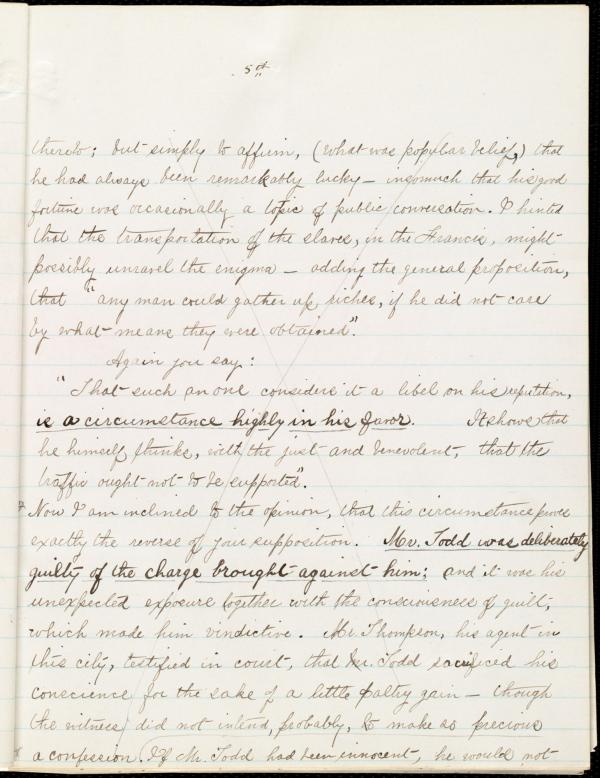 5th
thereto; but simply to affirm, (what was popular belief,) that
he had always been remarkably lucky — insomuch that his good
fortune was occasionally a topic of public conversation. I hinted
that the transportation of the slaves, in the Francis, might
possibly unravel the enigma — adding the general proposition,
that "any man could gather up riches, if he did not care
by what means they were obtained".
Again you say:
"That such an one considers it a libel on his reputation,
is a circumstance highly in his favor. It shows that
he himself thinks, with the just and benevolent, that the
traffic ought not to be supported".
Now I am inclined to the opinion, that this circumstance proves
exactly the reverse of your supposition. Mr. Todd was deliberately
guilty of the charge brought against him; and it was his
unexpected exposure together with the consciousness of guilt,
which made him vindictive. Mr. Thompson, his agent in
this city, testified in court, that Mr. Todd sacrificed his
conscience for the sake of a little paltry gain — though
the witness did not intend, probably, to make so precious
a confession. If Mr. Todd had been innocent, he would not